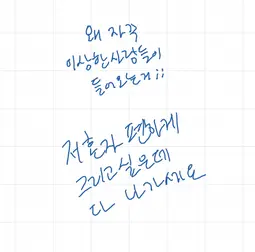 왜 자꾸
이상한사람들이
들어오는거;;
저혼자 편하게
그리고싶은데
다 나가세요